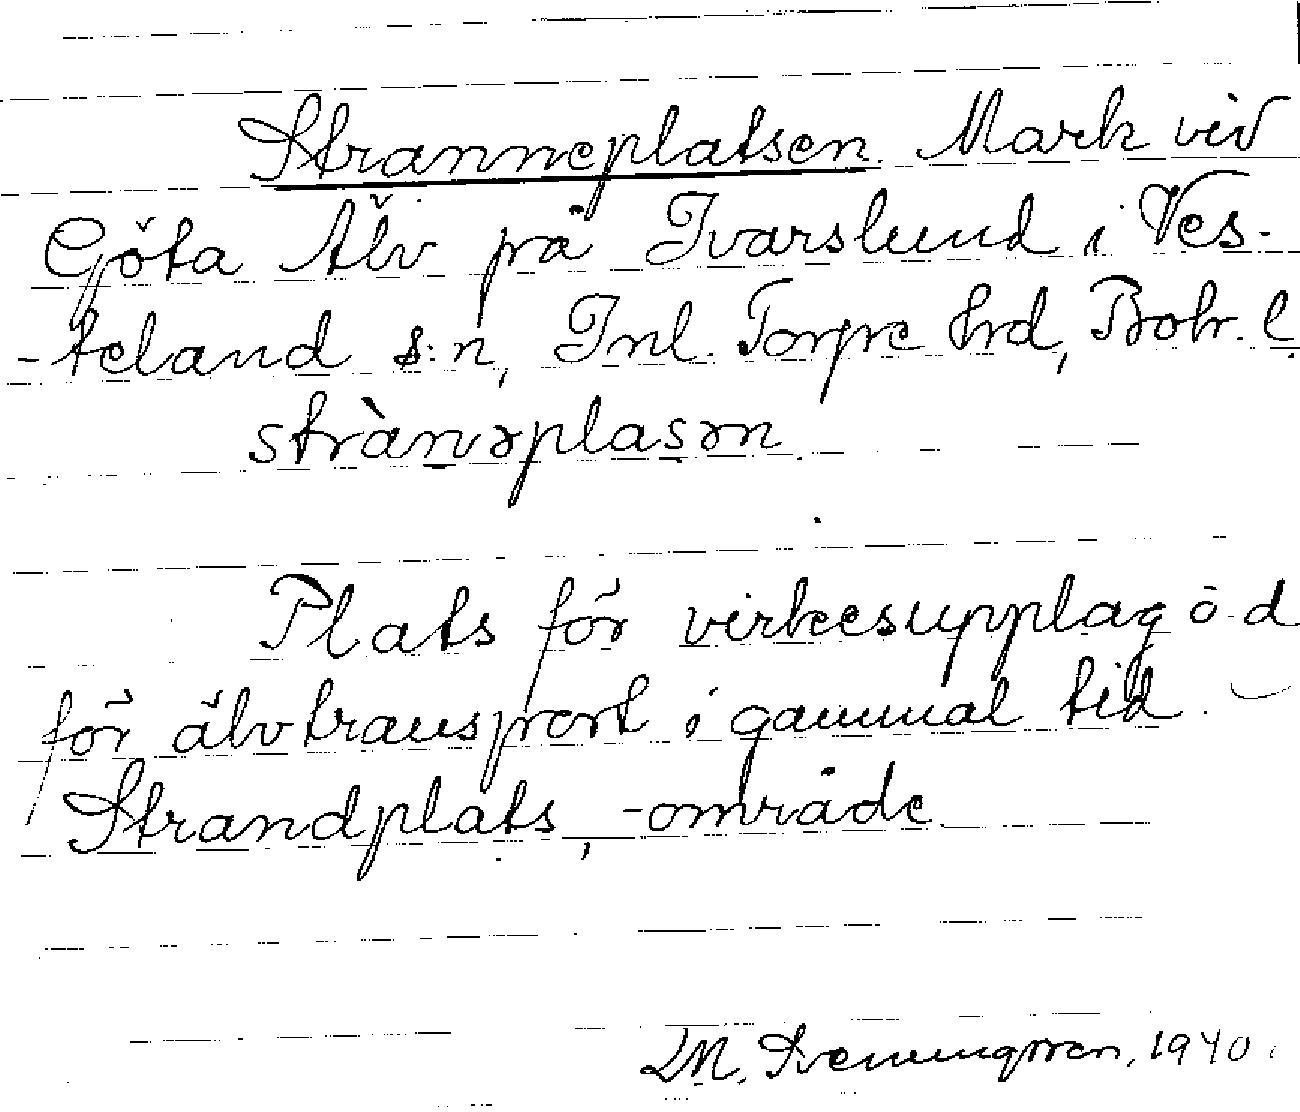 Stranneplatsen. Mark vid
Göta Älv på Ivarslund i Ves-
-terland s:n, Inl. Torpe hrd, Boh. l.
strànəplasən.
Plats för virkesupplag o d
för älvtransport i gammal tid. –
Strandplats, -område
M. 1940.